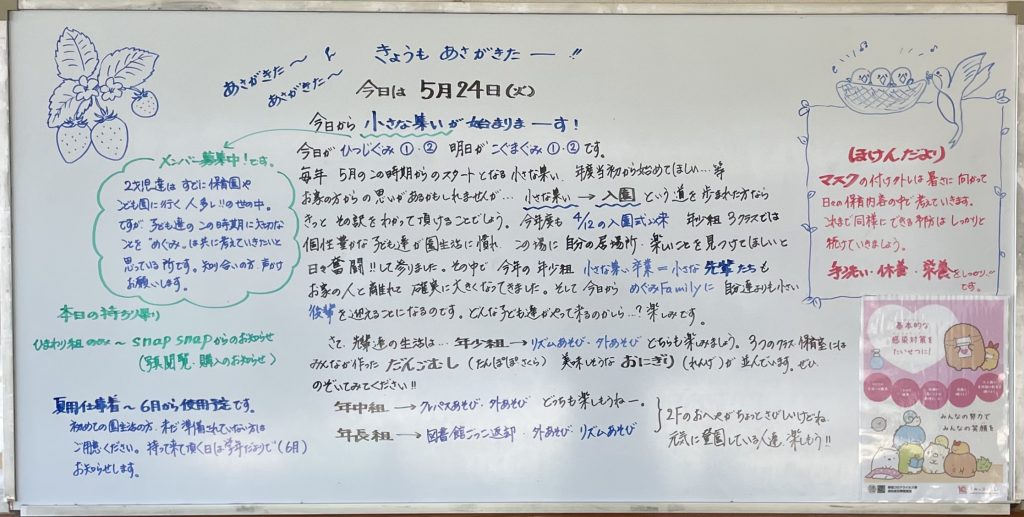 きょうも あさがきたー!!
あさがきた〜
あさがきた〜
今日は 5月24日(火)
今日から 小さな集いが始まりまーす!
今日が ひつじぐみ①・② 明日が こぐまぐみ①・②です。
毎年 5月のこの時期からのスタートとなる小さな集い、年度当初から始めてほしい…等
お家の方からの思いがあるかもしれませんが… 小さな集い→入園 という道を歩まれた方なら
きっと その訳をわかって頂けることでしょう。今年度も 4/12の入園式以来 年少組 3クラスでは
個性豊かな子ども達が園生活に慣れ この場に自分の居場所・楽しいことを見つけてほしいと
日々奮闘!!して参りました。その中で 今年の年少組 小さな集い卒業=小さな先輩たちも
お家の人と離れて 確実に大きくなってきました。そして 今日から めぐみFamilyに 自分達よりも小さい
後輩を迎えることになるのです。どんな子ども達がやって来るのかしら…?楽しみです。
さて、先輩達の生活は… 年少組→リズムあそび・外あそび どちらも楽しみましょう。3つのクラス保育室には
みんなが作った だんごむし(たんぽぽ・さくら) 美味しそうな おにぎり(れんげ)が並んでいます。ぜひ、
のぞいてみてください!!
年中組→クレパスあそび・外あそび どっちも楽しもうねー。
年長組→図書館ごっこ返却・外あそび・リズムあそび
2Fのおへやがちょっとさびしいけどね
元気に登園している人達、楽しもう!!
メンバー募集中!です。
2才児達は すでに保育園や
こども園に行く人多し!!の世の中。
ですが 子ども達の この時期に大切な
ことを"めぐみ"は共に考えていきたいと
思っている所です。知り合いの方、声かけ
お願いします。
本日の持ち帰り
ひまわり組のみ〜snap snapからのお知らせ
(写真閲覧・購入のお知らせ)
夏用仕事着〜6月から使用予定です。
初めての園生活の方・未だ準備されていない方は
ご用意ください。持って来て頂く日は学年だよりで(6月)
お知らせします。
ほけんだより
マスクの付け外しは暑さに向かって
日々の保育内容の中で考えていきます。
これまで同様に できる予防はしっかりと
続けていきましょう。
手洗い・休養・栄養をしっかり!!
です。
基本的な
感染対策を
たいせつに!
みんなの努力で
みんなの笑顔を